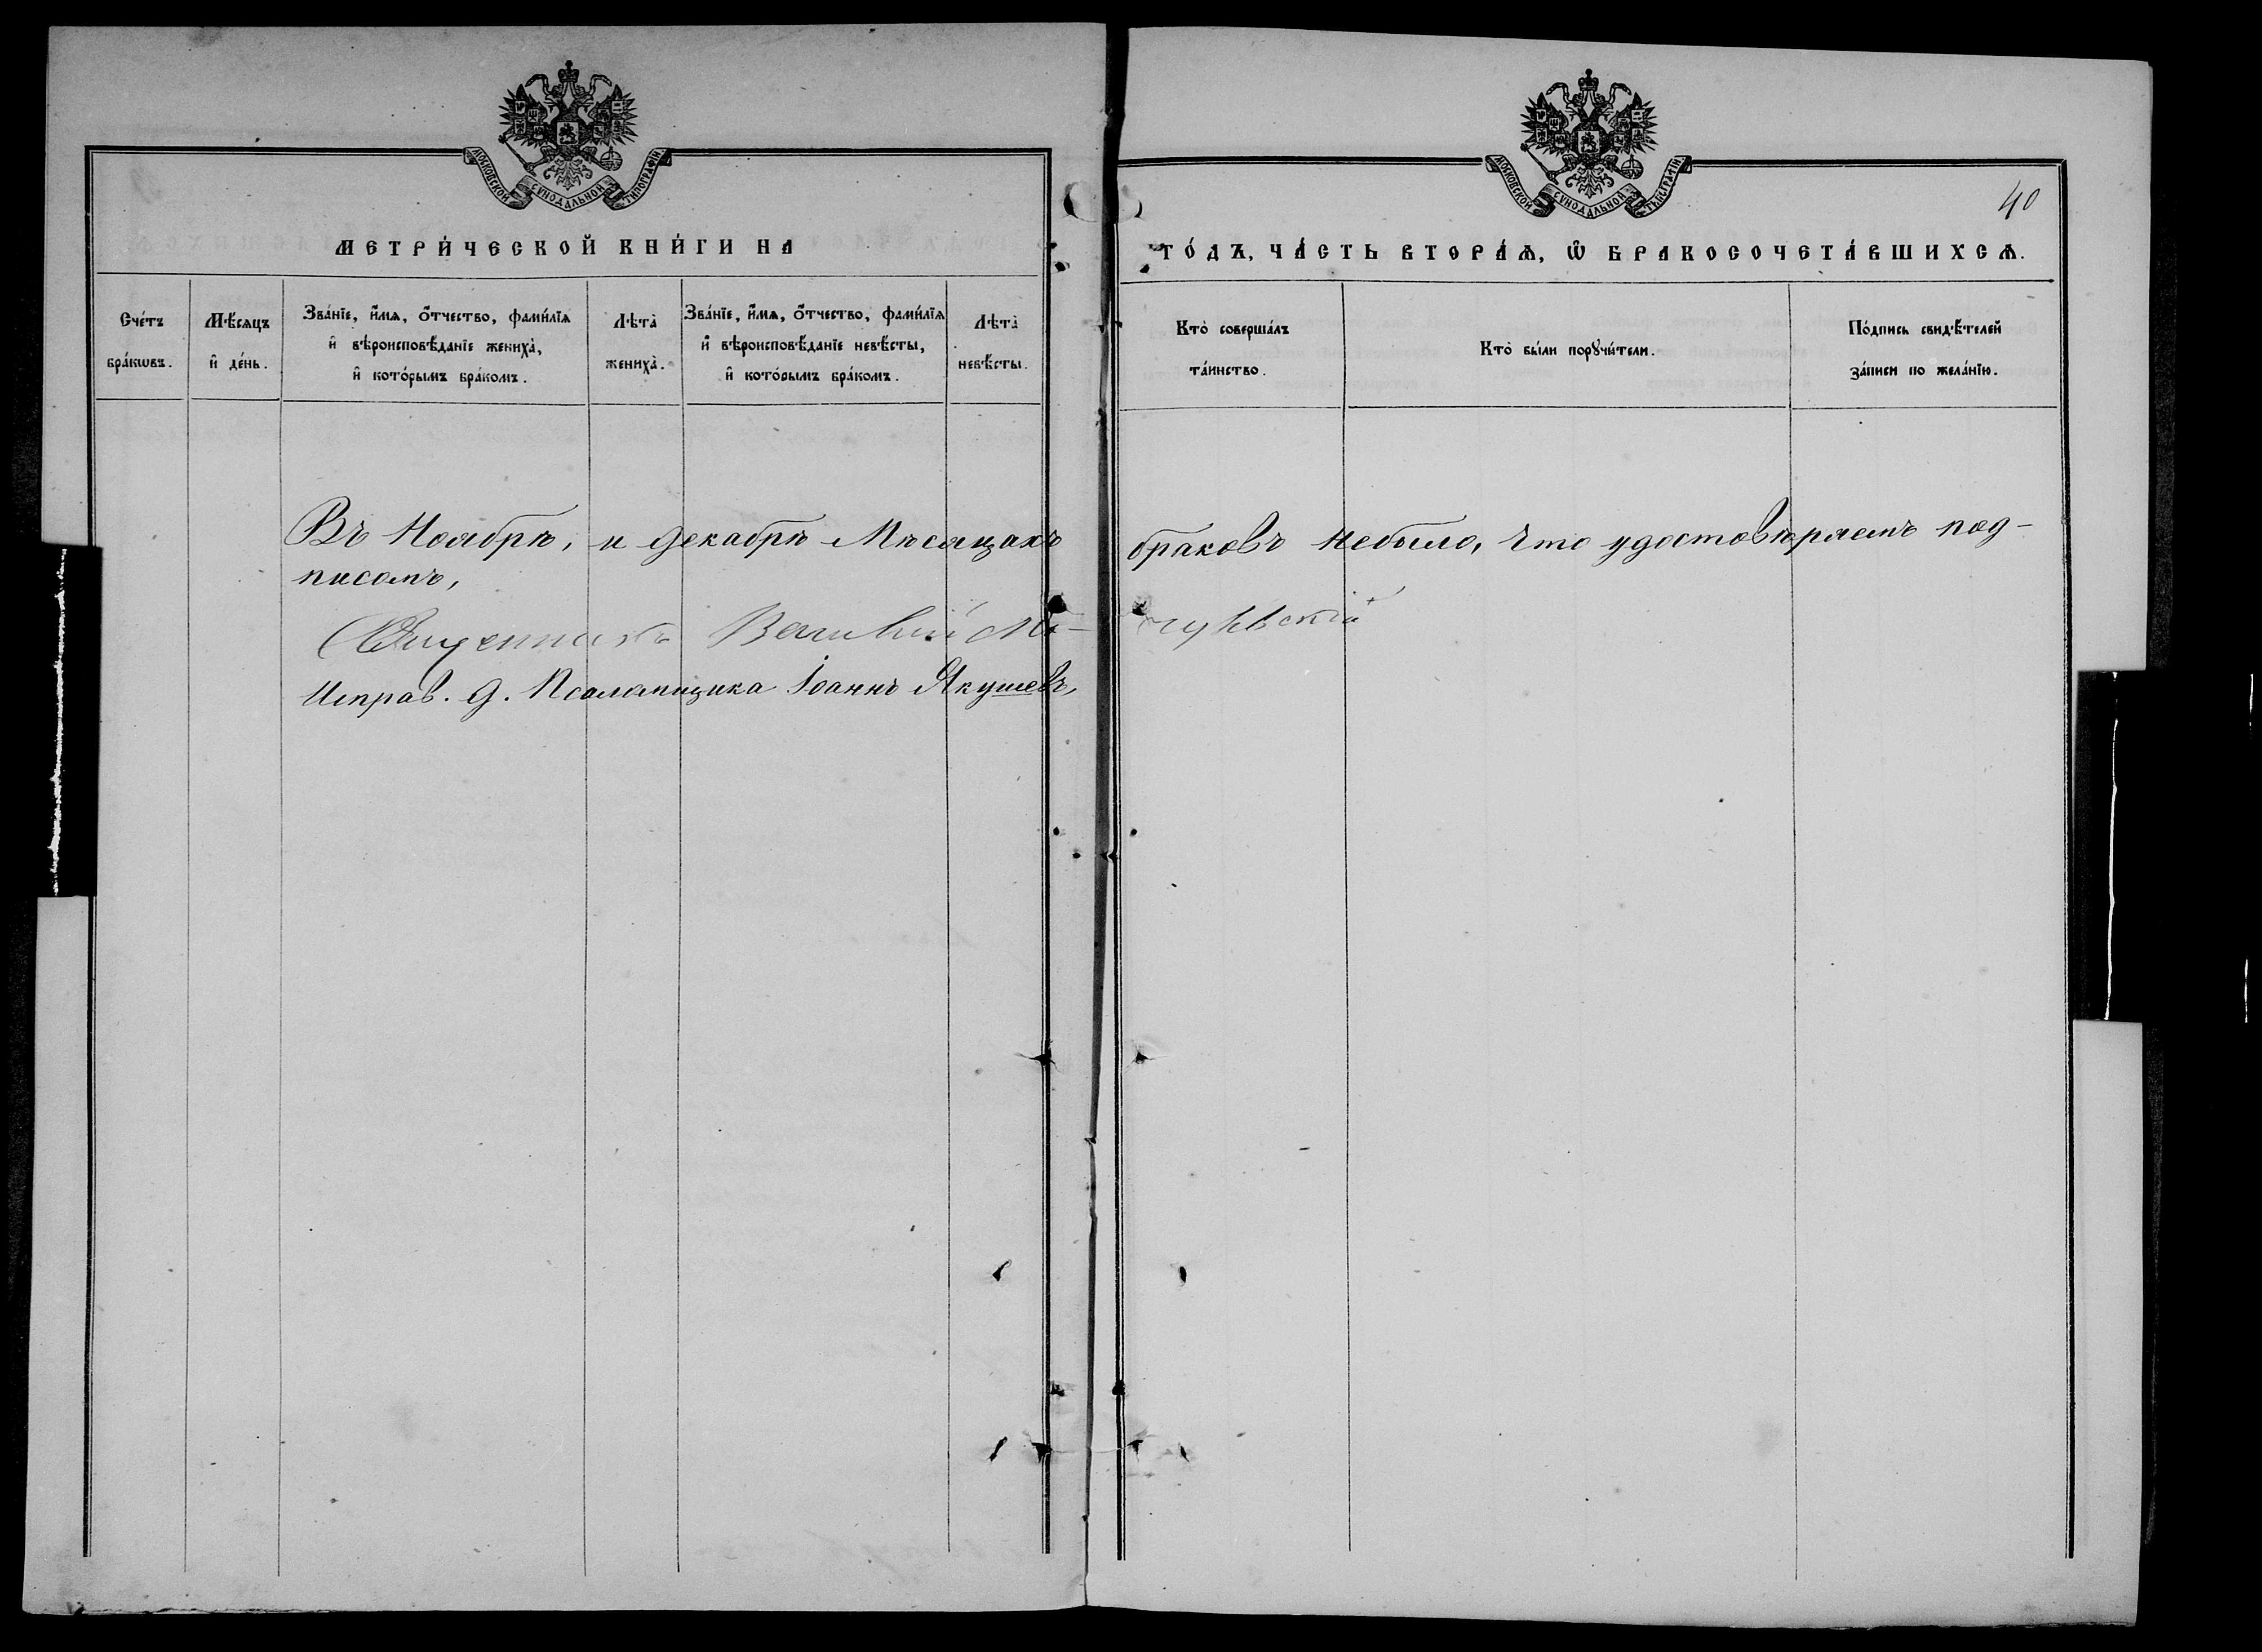 МОСКОВСКОЙ СѴНОДАЛЬНОЙ ТИПОГРАФІИ.
МОСКОВСКОЙ СѴНОДАЛЬНОЙ ТИПОГРАФІИ.
40
МЕТРИ́ЧЕСКОЙ КНИ́ГИ НА
ГО́ДЪ, ЧА́СТЬ ВТОРА́Ѧ, Ѽ БРАКОСОЧЕТА́ВШИХСѦ.
Сче́тъ
бра́кѡвъ.
Мѣ́сѧцъ
и҆ де́нь.
Зва́нїе, и҆́мѧ, ѻ҆́тчество, фами́лїѧ
и҆ вѣроисповѣ́данїе жениха̀,
и҆ кото́рымъ бра́комъ.
Лѣта̀
жениха̀.
Зва́нїе, и҆́мѧ, ѻ҆́тчество, фами́лїѧ
и҆ вѣроисповѣ́данїе невѣ́сты,
и҆ кото́рымъ бра́комъ.
Лѣта̀
невѣ́сты.
Кто̀ соверша́лъ
та́инство.
Кто̀ бы́ли порꙋчи́тели.
По́дпись свидѣ́телей
за́писи по жела́нїю.
Въ Ноябрѣ, и Декабрѣ Мѣсяцахъ браковъ небыло, Что удостовѣряемъ под-
писомъ,
Священникъ Василий
Исправ. д. Псаломщика Іоаннъ Якушевъ,